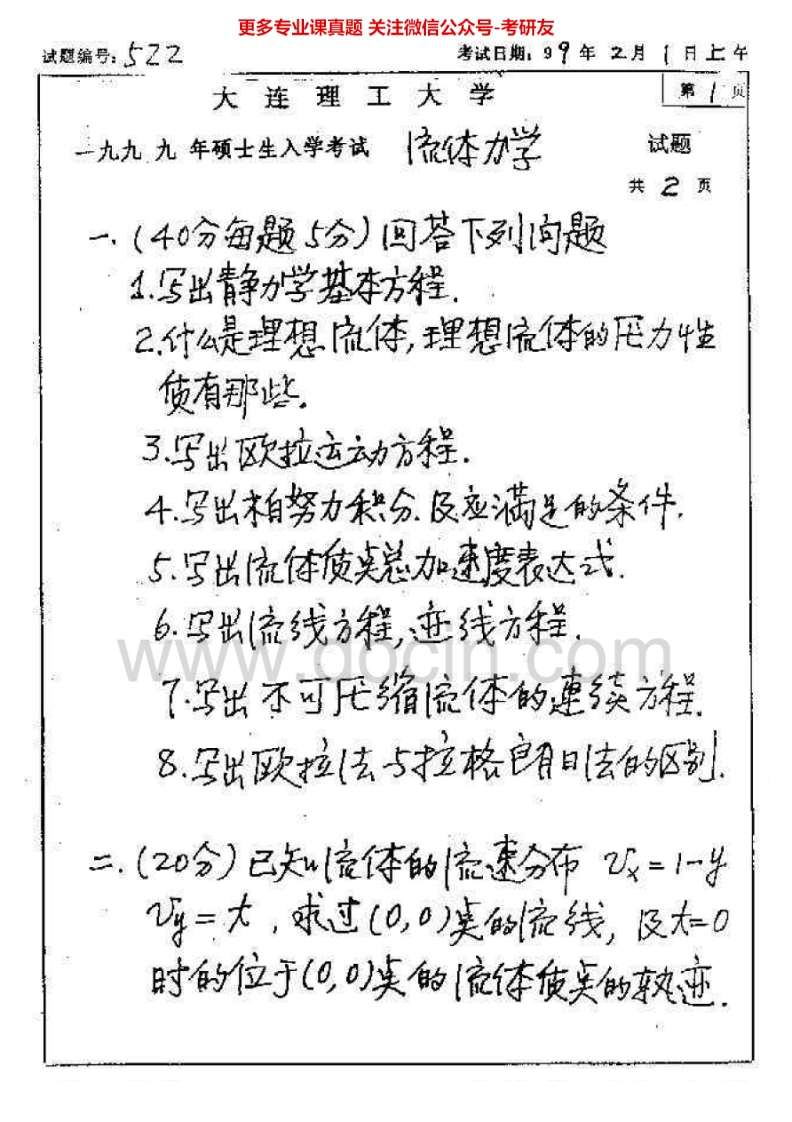 更多专业课真题 关注微信公众号-考研友
试题编号:522 考试日期:99年2月1日上午
大连理工大学 第1页
一九九九年硕士生入学考试 流体力学 试题
共2页
一.(40分每题5分)回答下列问题
1.写出静力学基本方程.
2.什么是理想流体,理想流体的压力性
质有那些.
3.写出欧拉运动方程.
4.写出柏努力积分.及应满足的条件.
5.写出流体质点总加速度表达式.
6.写出流线方程,迹线方程.
www.docin.com
7.写出不可压缩流体的連续方程.
8.写出欧拉法与拉格朗日法的区别.
二.(20分)已知流体的流速分布 Vx=1-y
Vy=t,求过(0,0)点的流线,及t=0
时的位于(0,0)点的流体质点的轨迹.